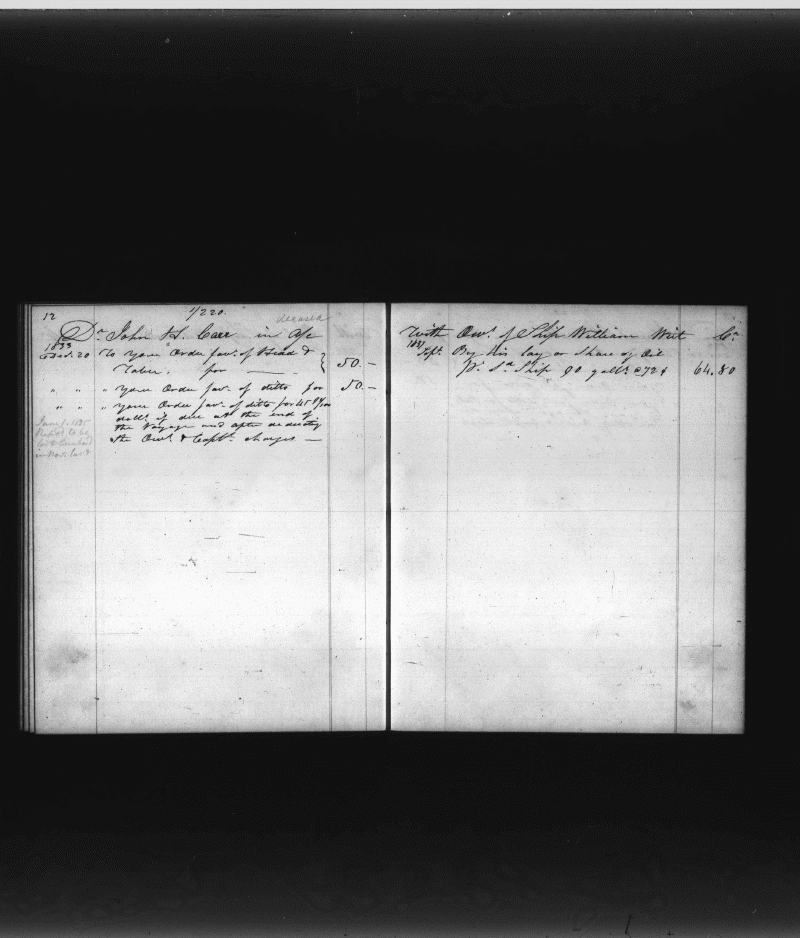 12
1/220.
deceased
Dr John H. Carr in A/c
1833
Decd. 20 To your Order favr. of Head &
Taber. for — 50.—
" " " your Order favr. of ditto for 50.—
" " " your Order favr. of ditto for
dolls. if due at the end of
the Voyage and after deducting
the Own. & Captn. charges —
June 1. 1835
With Own. of Ship William Wirt Cr.
1837
Sept. By his Lay or Share of Oil
pr. Sd. Ship 90 galls. @ 72 ¢ 64.80